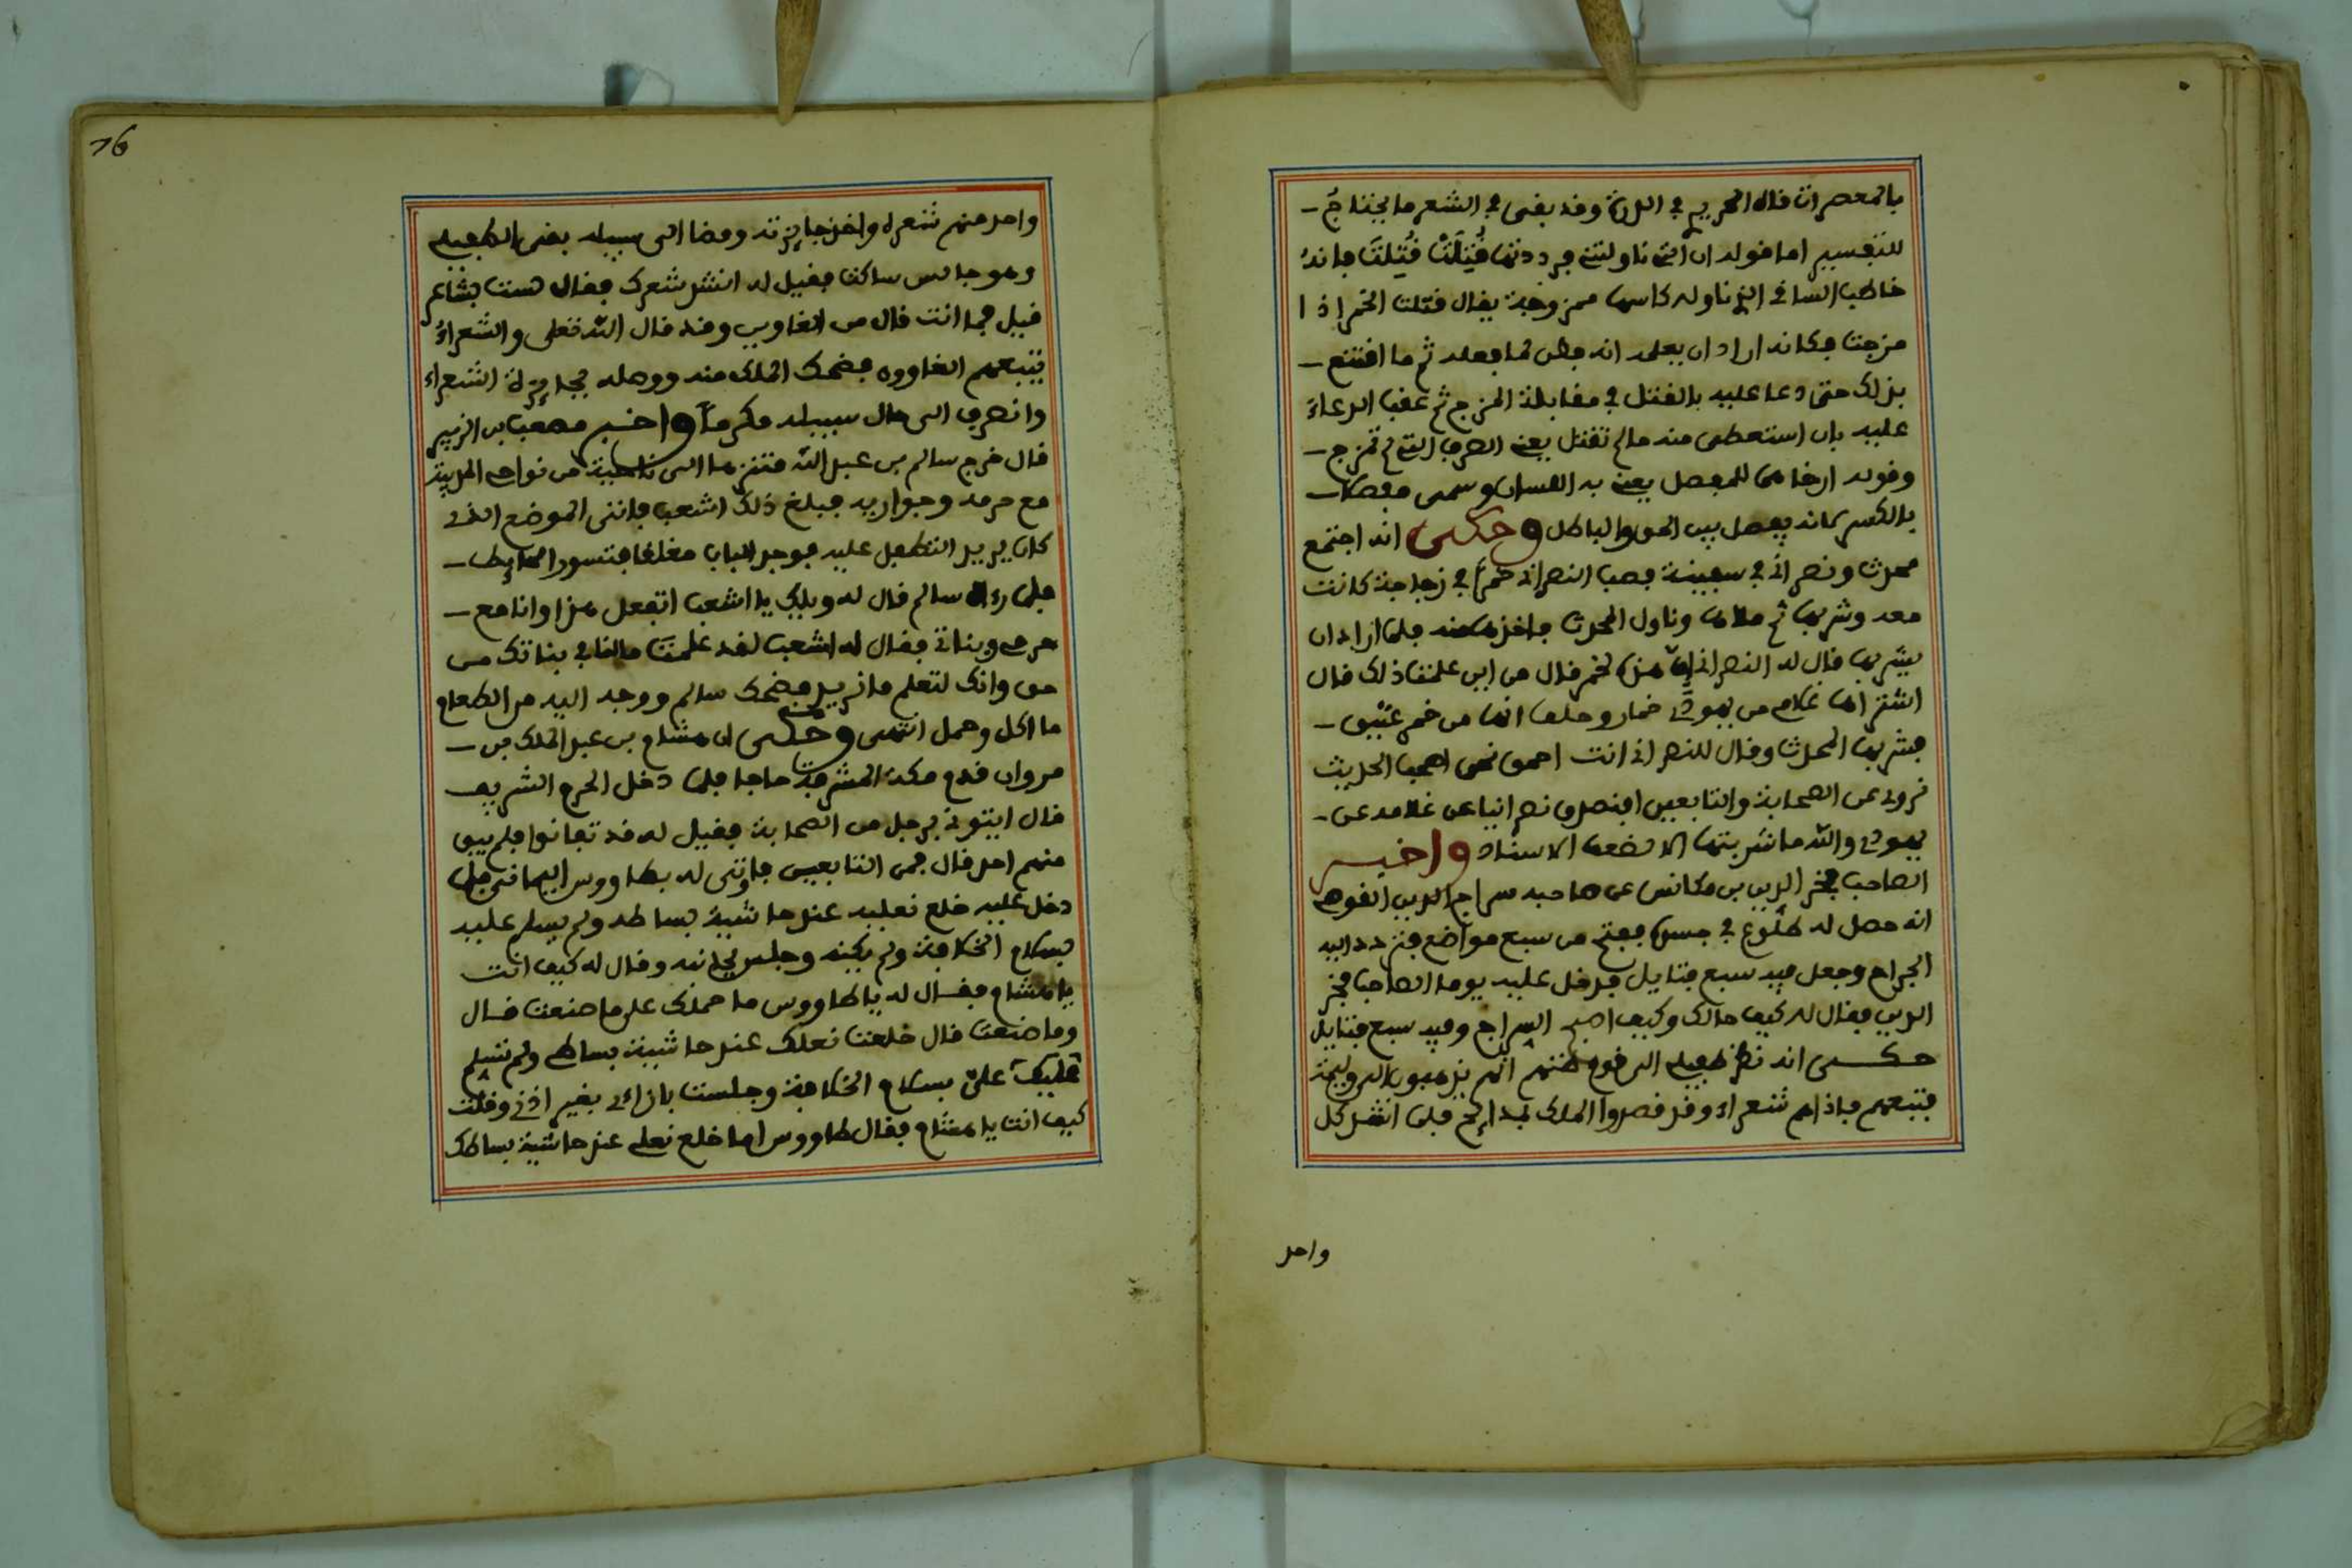 بالمعصرات قاله الحريري في الدرة وقد بقى في الشعر ما يحتاج
للتفسير اما قوله ان التي ناولتني فرددتها قُتِلَتْ قُتِلتَ فانه
خاطب الساقي الذي ناوله كاسها ممزوجة يقال قتلت الخمر اذا
مزجت فكانه اراد ان يعلمه انه فطن لما فعله ثم ما اقتنع
بذلك حتى دعا عليه بالقتل في مقابلة المزج ثم عقب الدعاء
عليه بان استعطى منه ما لم تقتل يعني الصرف التي لم تمزج
وقوله ارخاهما للمفصل يعني به اللسان وسمى مفصلا
بالكسر لانه يفصل بين الحق والباطل وحكى انه اجتمع
محدث ونصراني في سفينة فصب النصراني خمرا في زجاجة كانت
معه وشربها ثم ملاها وناول المحدث فاخذها منه فلما اراد ان
يشربها قال له النصراني ان هذه لخمر قال من اين علمت ذلك قال
اشتراها غلامي من يهودي خمار وحلف انها من خمر عتيق
فشربها المحدث وقال للنصراني انت احمق نحن اصحب الحديث
نروي عن الصحابة والتابعين افنصدق نصرانيا عن غلامه عن
يهودي والله ما شربتها الا لضعف الاسناد واخبر
الصاحب فخر الدين بن مكانس عن صاحبه سراج الدين القوصي
انه حصل له طلوع في جسده ففتح من سبع مواضع فتردد اليه
الجراح وجعل فيه سبع فتايل فدخل عليه يوما الصاحب فخر
الدين فقال له كيف حالك وكيف اصبح السراج وفيه سبع فتايل
حكى انه نظر طفيلي الى قوم فظنهم انهم يذهبون الى وليمة
فتبعهم فاذا هم شعراء وقد قصدوا الملك بمدائح فلما انشد كل
واحد
76
واحد منهم شعره واخذ جايزته ومضا الى سبيله بقى الطفيلي
وهو جالس ساكت فقيل له انشد شعرك فقال لست بشاعر
قيل فما انت قال من الغاوين وقد قال الله تعلى والشعراءُ
يتبعهم الغاوون فضحك الملك منه ووصله بجايزة الشعراء
وانصرف الى حال سبيله مكرماً واخبر مصعب بن الزبير
قال خرج سالم بن عبد الله متنزها الى ناحية من نواحي المدينة
مع حرمه وجواريه فبلغ ذلك اشعب فاتى الموضع الذي
كان يريد التطفل عليه فوجد الباب مغلقا فتسور الحايط
فلما رءاه سالم قال له ويلك يا اشعب اتفعل هذا وانا مع
حرمي وبناتي فقال له اشعب لقد علمت مالنا في بناتك من
حق وانك لتعلم ما نريد فضحك سالم ووجه اليه من الطعام
ما اكل وحمل انتهى وحكى ان هشام بن عبد الملك بن
مروان قدم مكة المشرفة حاجا فلما دخل الحرم الشريف
قال ايتوني برجل من الصحابة فقيل له قد تفانوا فلم يبق
منهم احد قال فمن التابعين فاوتى له بطاووس اليماني فلما
دخل عليه خلع نعليه عند حاشية بساطه ولم يسلم عليه
بسلام الخلافة ولم يكنه وجلس بجانبه وقال له كيف انت
يا هشام فقال له يا طاووس ما حملك على ما صنعت قال
وما صنعت قال خلعت نعلك عند حاشية بساطي ولم تسلم
عليك على بسلام الخلافة وجلست بازاءي بغير اذني وقلت
كيف انت يا هشام فقال طاووس اما خلع نعلي عند حاشية بساطك